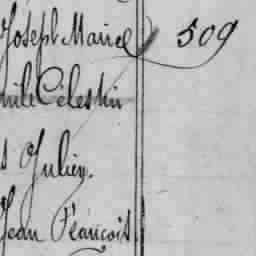 Joseph Marie 509
mile Célestin
s Julien.
Jean François